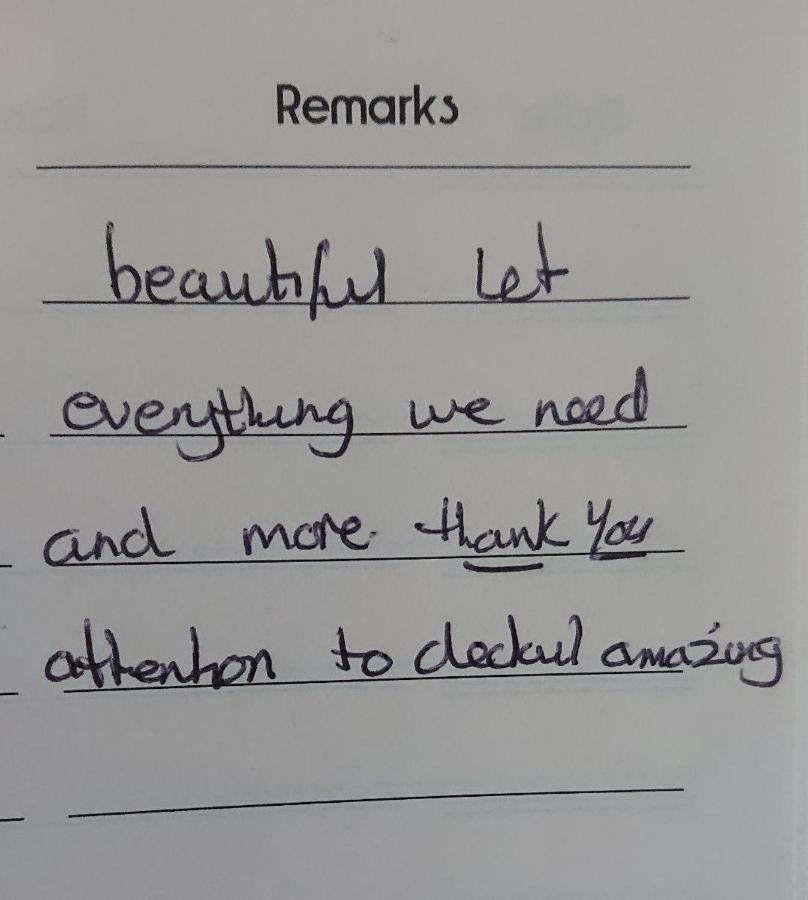 Remarks
beautiful Let
everything we need
and more thank you
attention to detail amazing